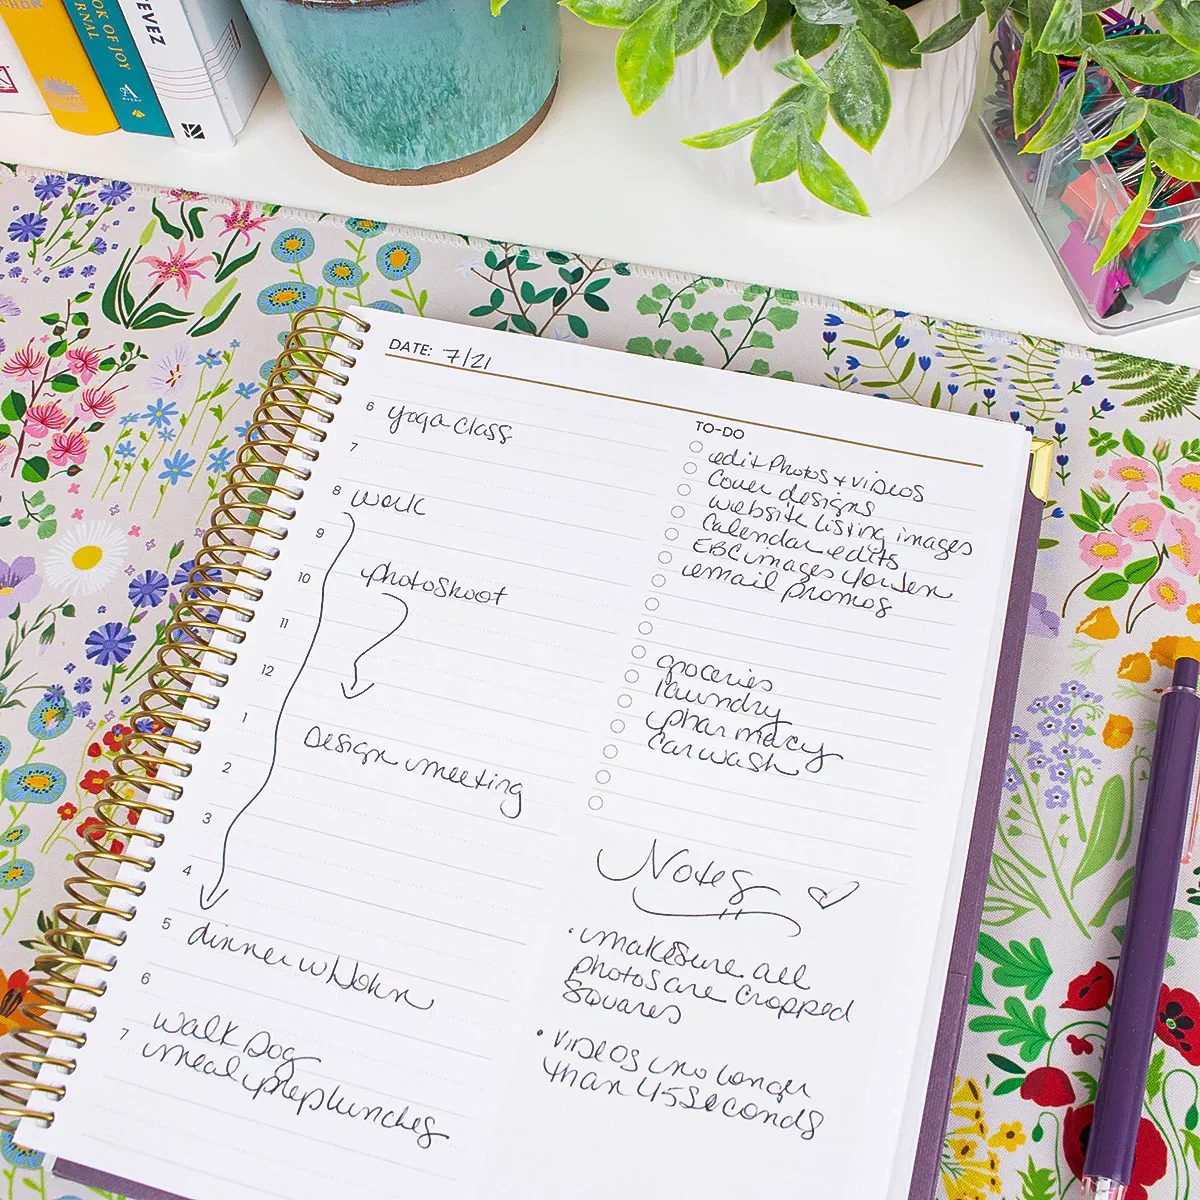 CHOR
BOOK OF JOY
JOURNAL
EVEZ
DATE: 7/21
6 yoga class
7
8 work
9
10 photoshoot
11
12
1 Design meeting
2
3
4
5 dinner w/ John
6
walk Dog
7 meal prep lunches
TO-DO
edit photos + videos
Cover designs
website listing images
Calendar edits
EBC images
email promos
groceries
laundry
pharmacy
car wash
Notes
• make sure all
photos are cropped
squares
• videos no longer
than 45 seconds